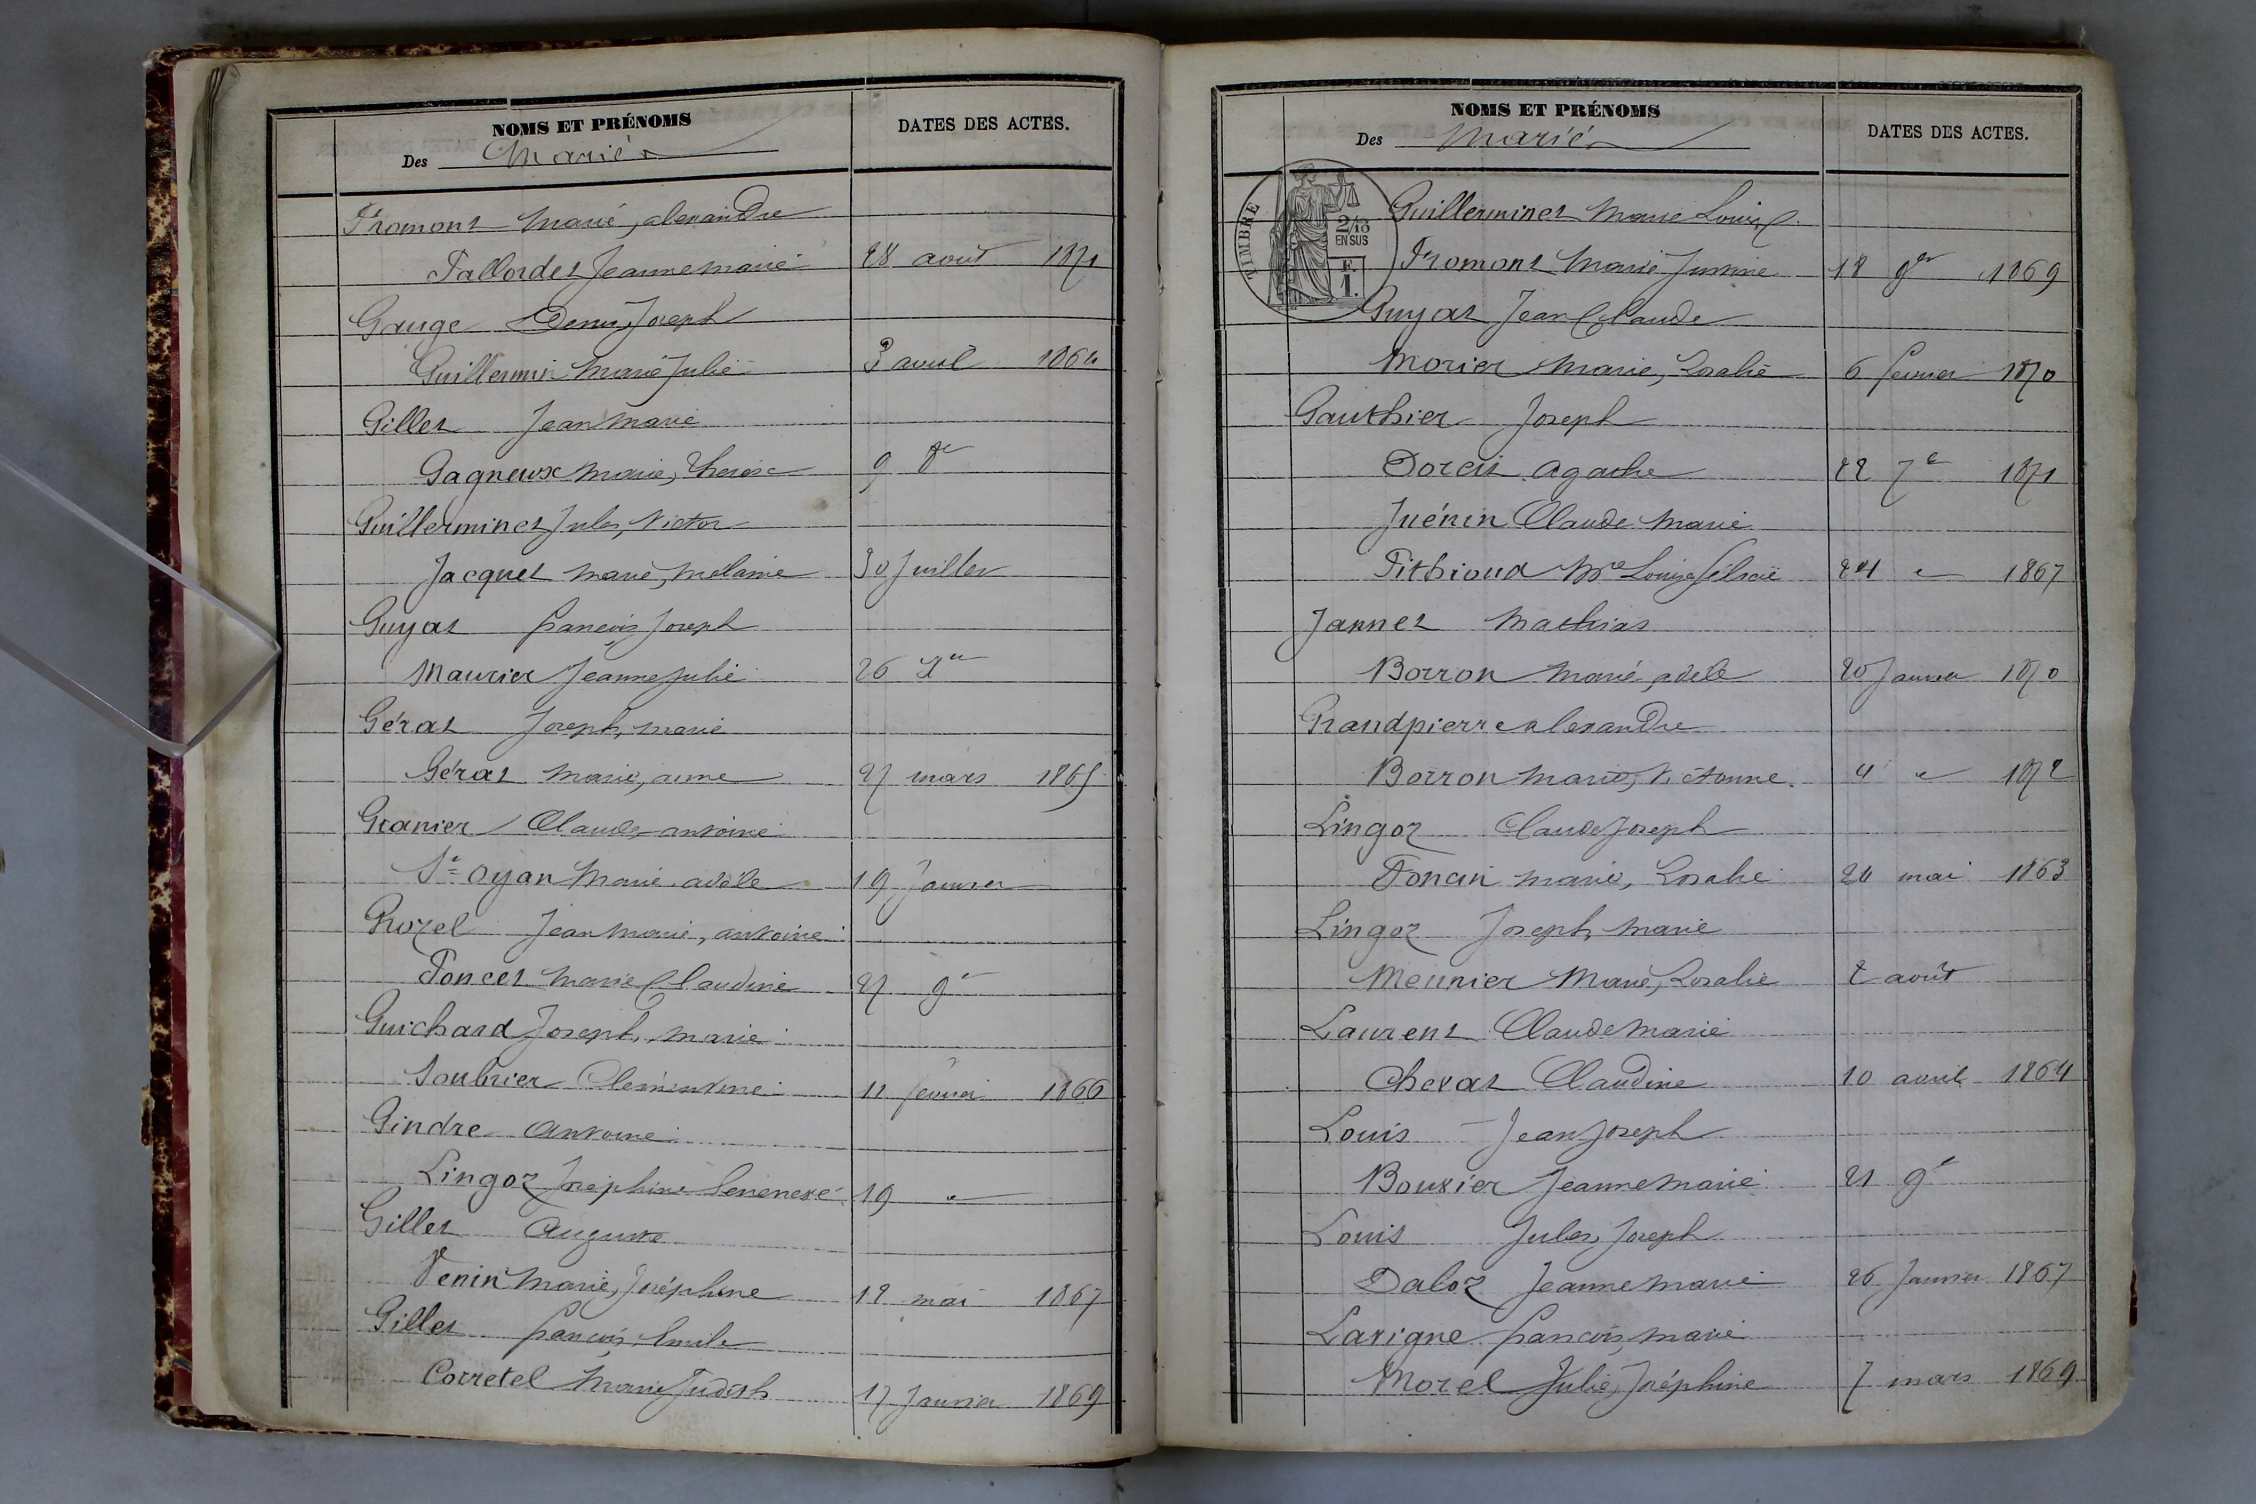 NOMS ET PRÉNOMS
Des Mariés
DATES DES ACTES.
Fromont Marie, alexandre
Pallordet Jeanne marie 28 août 1871
Gauge Denis, Joseph
Guillermin Marie Julie 3 avril 1864
Gillet Jean Marie
Gagneux Marie, Therèse 9
Guillerminet Jules, Victor
Jacquet Marie, Melanie 30 Juillet
Guyat françois Joseph
Maurier Jeanne Julie 26
Gérat Joseph, marie
Gérat Marie, anne 27 mars 1865
Granier Claude, antoine
St oyan Marie adèle 19 Janvier
Grozel Jean Marie, antoine
Poncet Marie Claudine 27 9e
Guichard Joseph, marie
Soubrier Clémentine 11 février 1866
Gindre Antoine
Lingoz Joséphine 19 "
Gillet Auguste
Venin Marie, Joséphine 12 mai 1867
Gillet françois, Emile
Corretel Marie Judith 17 Janvier 1869
NOMS ET PRÉNOMS
Des Mariés
DATES DES ACTES.
TIMBRE
2/10
EN SUS
F.
1.
Guillerminet Marie Louis
Fromont Marie Justine 18 9bre 1869
Guyat Jean Claude
Morier Marie, Rosalie 6 février 1870
Gauthier Joseph
Dorcis Agathe 22 7e 1871
Juénin Claude Marie
Pithioud Mie Louise 24 " 1867
Jannet Mathias
Borron Marie, adèle 20 Janvier 1870
Grandpierre Alexandre
Borron Marie, Victorine 4 " 1872
Lingoz Claude Joseph
Poncin Marie, Rosalie 24 mai 1863
Lingoz Joseph, Marie
Meunier Marie, Rosalie 2 août
Laurent Claude Marie
Chevat Claudine 10 avril 1864
Louis Jean Joseph
Bouvier Jeanne Marie 21 9e
Louis Jules, Joseph
Daloz Jeanne Marie 26 Janvier 1867
Lavigne françois, Marie
Morel Julie, Joséphine 7 mars 1869